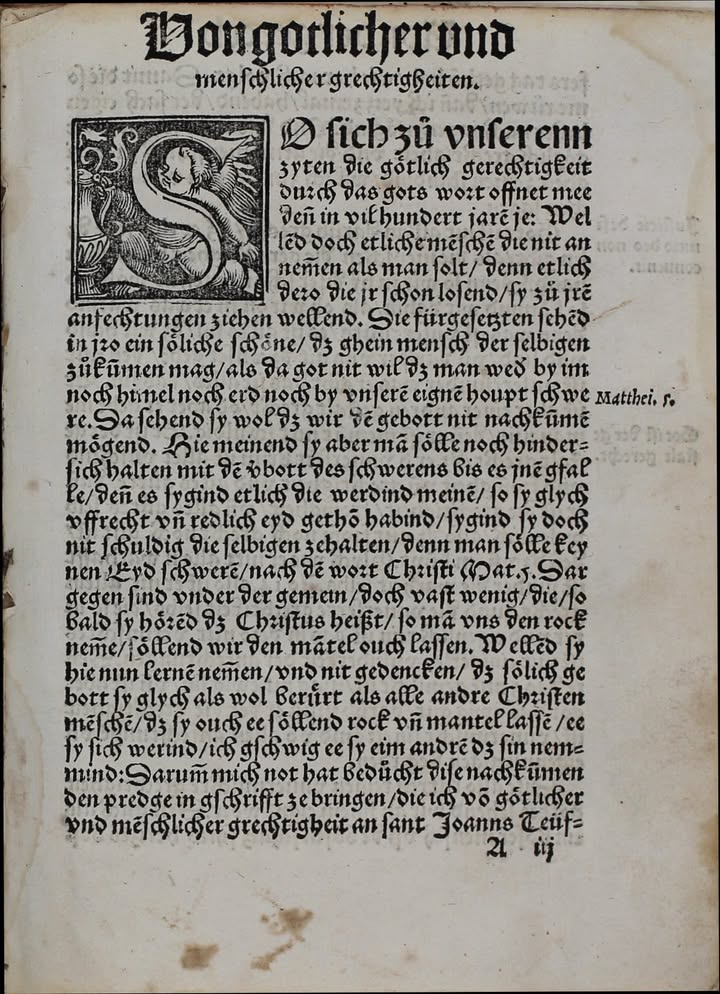 Von gotlicher und
menschlicher grechtigheiten.
SO sich zů vnserenn
zyten die götlich gerechtigkeit
durch das gots wort offnet mee
deñ in vil hundert jarē je: Wel
lēd doch etliche mēschē die nit an
nem̄en als man solt/ denn etlich
dero die jr schon losend/sy zů jrē
anfechtungen ziehen wellend. Sie fürgesetzten sehēd
in jro ein söliche schöne/ dz ghein mensch der selbigen
zůkūmen mag/als da got nit wil dz man wed by im
noch him̄el noch erd noch by vnserē eignē houpt schwe
re. Da sehend sy wol dz wir dē gebott nit nachkūmē
mögend. Hie meinend sy aber mā sölle noch hinder-
sich halten mit dē vbott des schwerens bis es jnē gfal
le/deñ es sygind etlich die werdind meinē/ so sy glych
vffrecht vñ redlich eyd gethō habind/sygind sy doch
nit schuldig die selbigen zehalten/denn man sölle key
nen Eyd schwerē/nach dē wort Christi Mat.5. Dar
gegen sind vnder der gemein/doch vast wenig/die/so
bald sy hörēd dz Christus heißt/ so mā vns den rock
nem̄e/söllend wir den mātel ouch lassen. Wellēd sy
hie nun lernē nem̄en/vnd nit gedencken/ dz sölich ge
bott sy glych als wol berůrt als alle andre Christen
mēschē/dz sy ouch ee söllend rock vñ mantel lassē/ee
sy sich werind/ich gschwig ee sy eim andrē dz sin nem-
mind: Darum̄ mich not hat bedůcht dise nachkūmen
den predge in gschrifft ze bringen/die ich vō götlicher
vnd mēschlicher grechtigheit an sant Joanns Teüf-
A iij
Matthei. 5.